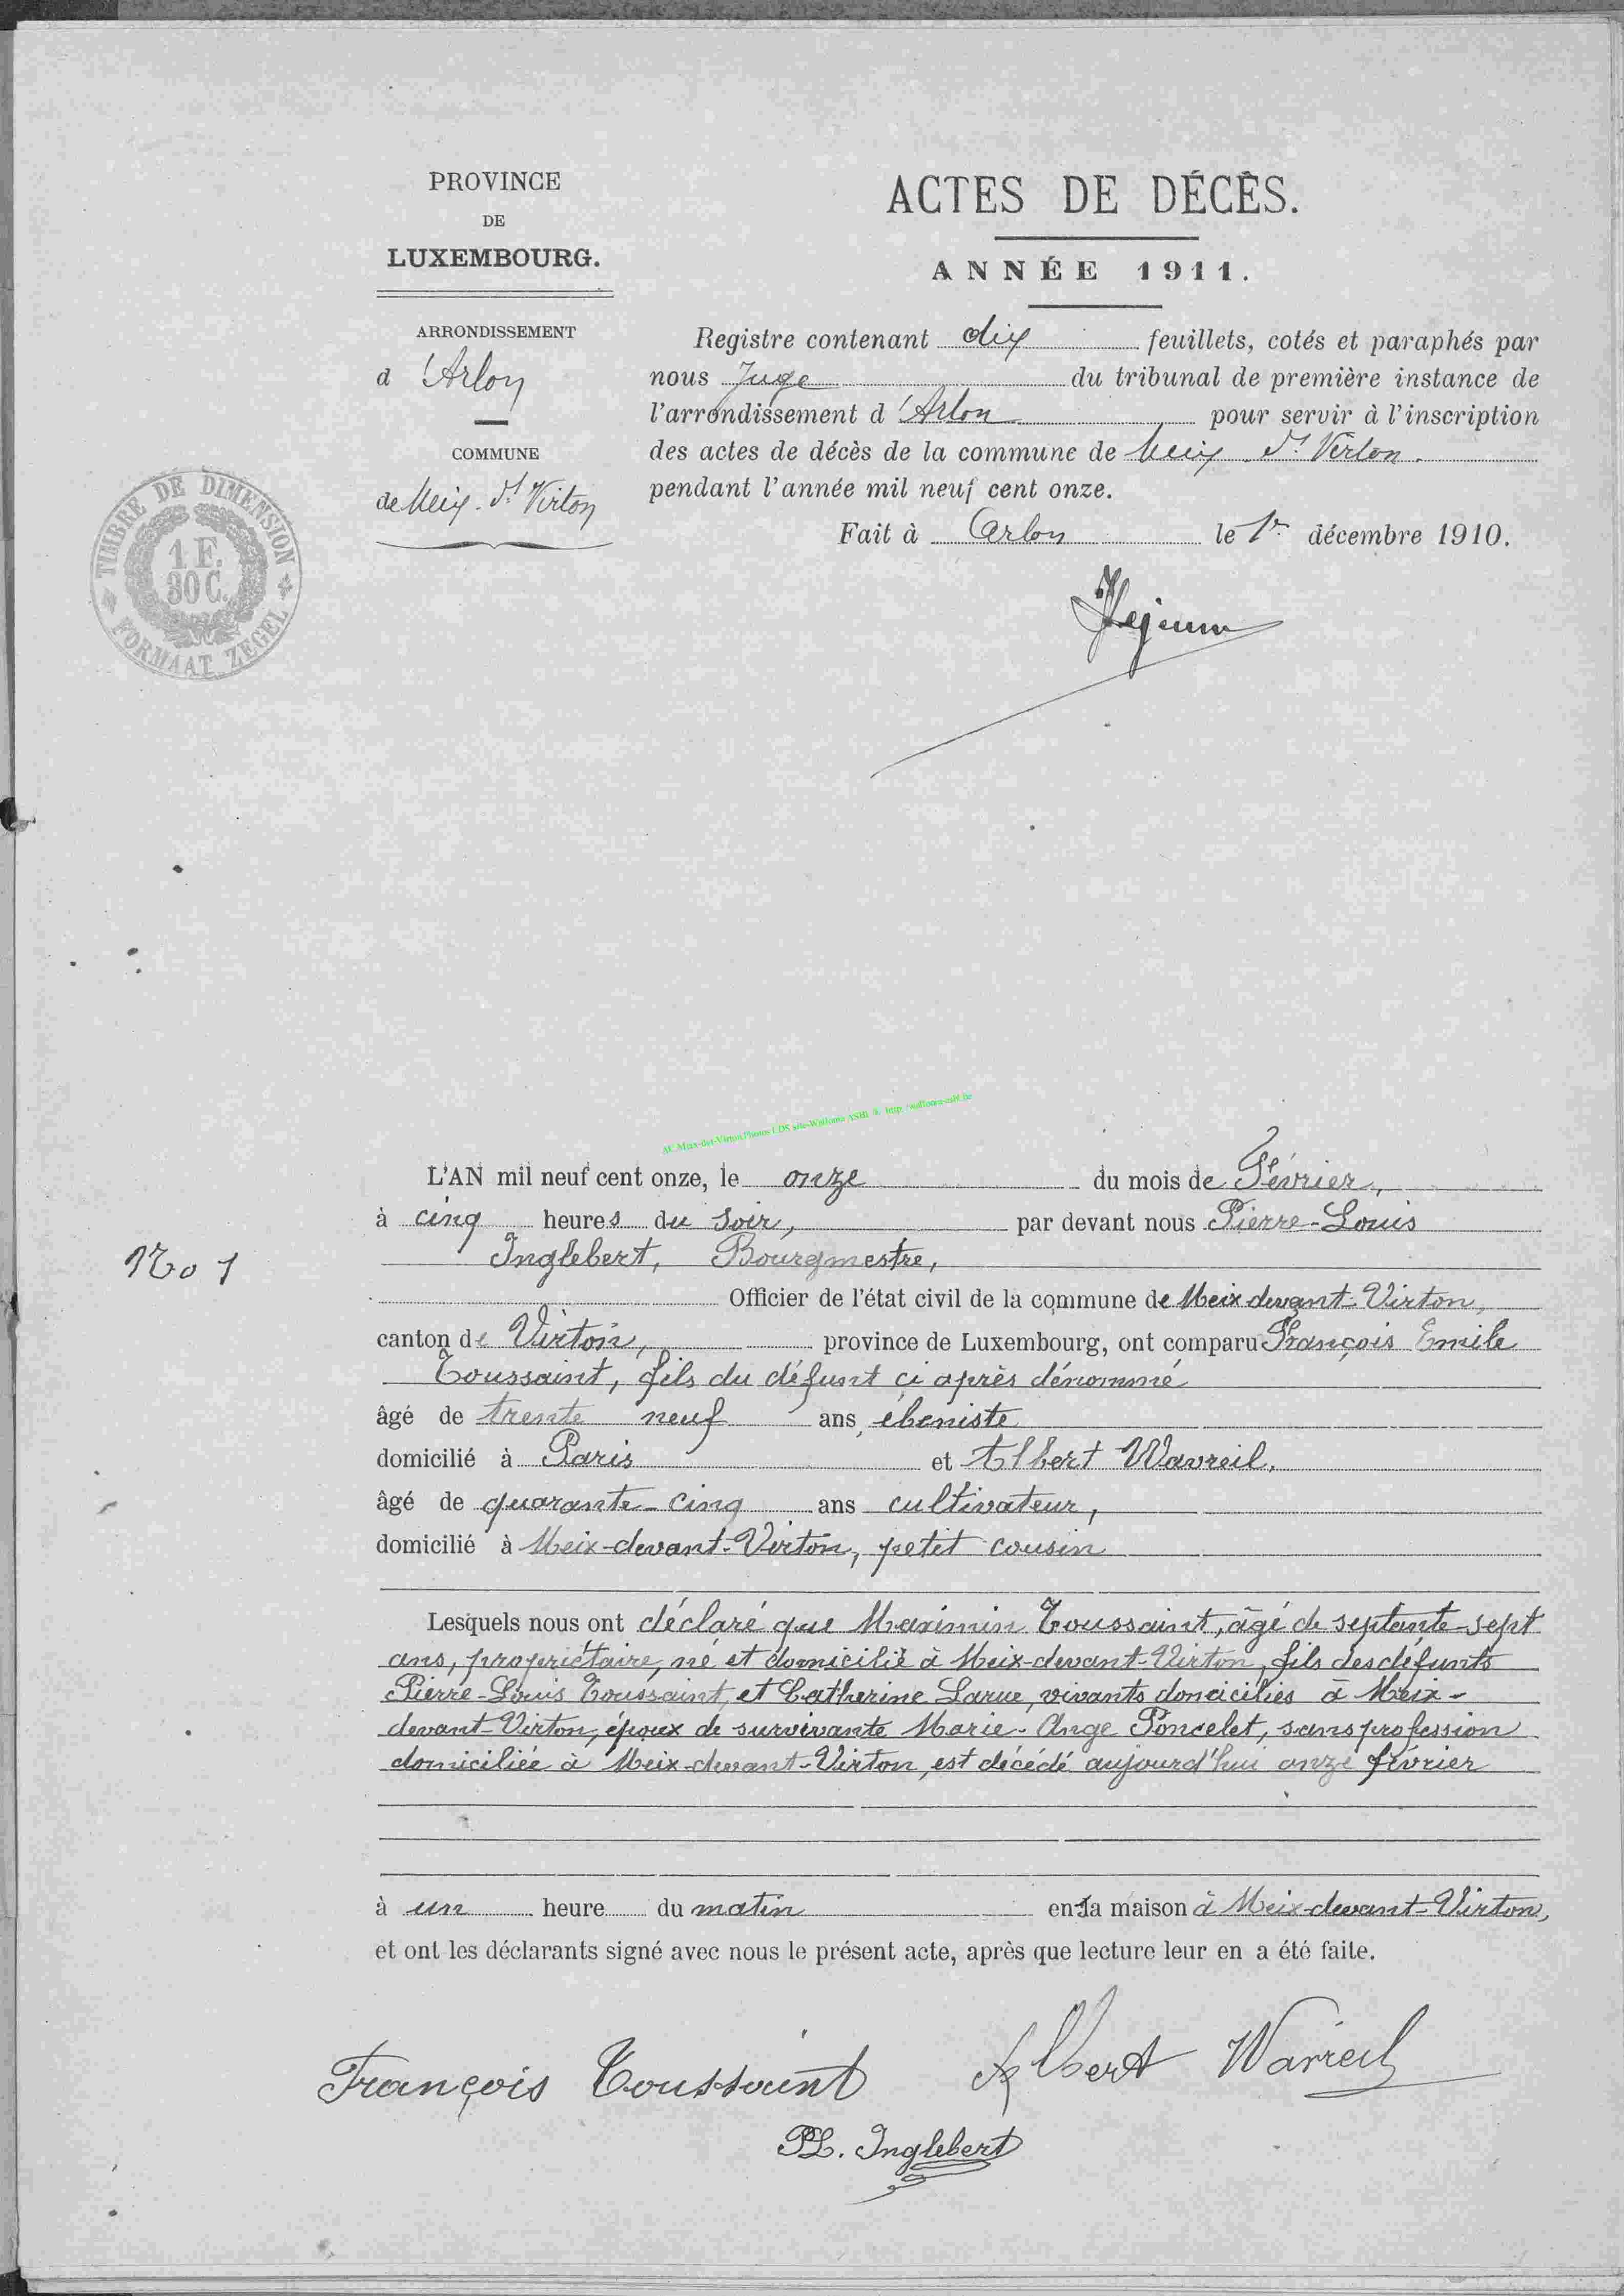 PROVINCE
DE
LUXEMBOURG.
ARRONDISSEMENT
d'Arlon
COMMUNE
de Meix-dt Virton
TIMBRE DE DIMENSION
1 F.
30 C.
FORMAAT ZEGEL
ACTES DE DÉCÈS.
ANNÉE 1911.
Registre contenant dix feuillets, cotés et paraphés par
nous Juge du tribunal de première instance de
l'arrondissement d'Arlon pour servir à l'inscription
des actes de décès de la commune de Meix dt Virton.
pendant l'année mil neuf cent onze.
Fait à Arlon le 1r décembre 1910.
No 1
L'AN mil neuf cent onze, le onze du mois de Février,
à cinq heures du soir, par devant nous Pierre-Louis
Inglebert, Bourgmestre,
Officier de l'état civil de la commune de Meix devant-Virton,
canton de Virton, province de Luxembourg, ont comparu François Emile
Toussaint, fils du défunt ci après dénommé
âgé de trente neuf ans, ébeniste
domicilié à Paris et Albert Wavreil,
âgé de quarante-cinq ans cultivateur,
domicilié à Meix-devant-Virton, petit cousin
Lesquels nous ont déclaré que Maximin Toussaint, âgé de septante-sept
ans, propriétaire, né et domicilié à Meix-devant-Virton, fils des défunts
Pierre-Louis Toussaint et Catherine Larue, vivants domiciliés à Meix-
devant-Virton, époux de survivante Marie-Ange Poncelet, sans profession
domiciliée à Meix-devant-Virton, est décédé aujourd'hui onze février
à un heure du matin en sa maison à Meix-devant-Virton,
et ont les déclarants signé avec nous le présent acte, après que lecture leur en a été faite.
François Toussaint Albert Wavreil
PL. Inglebert